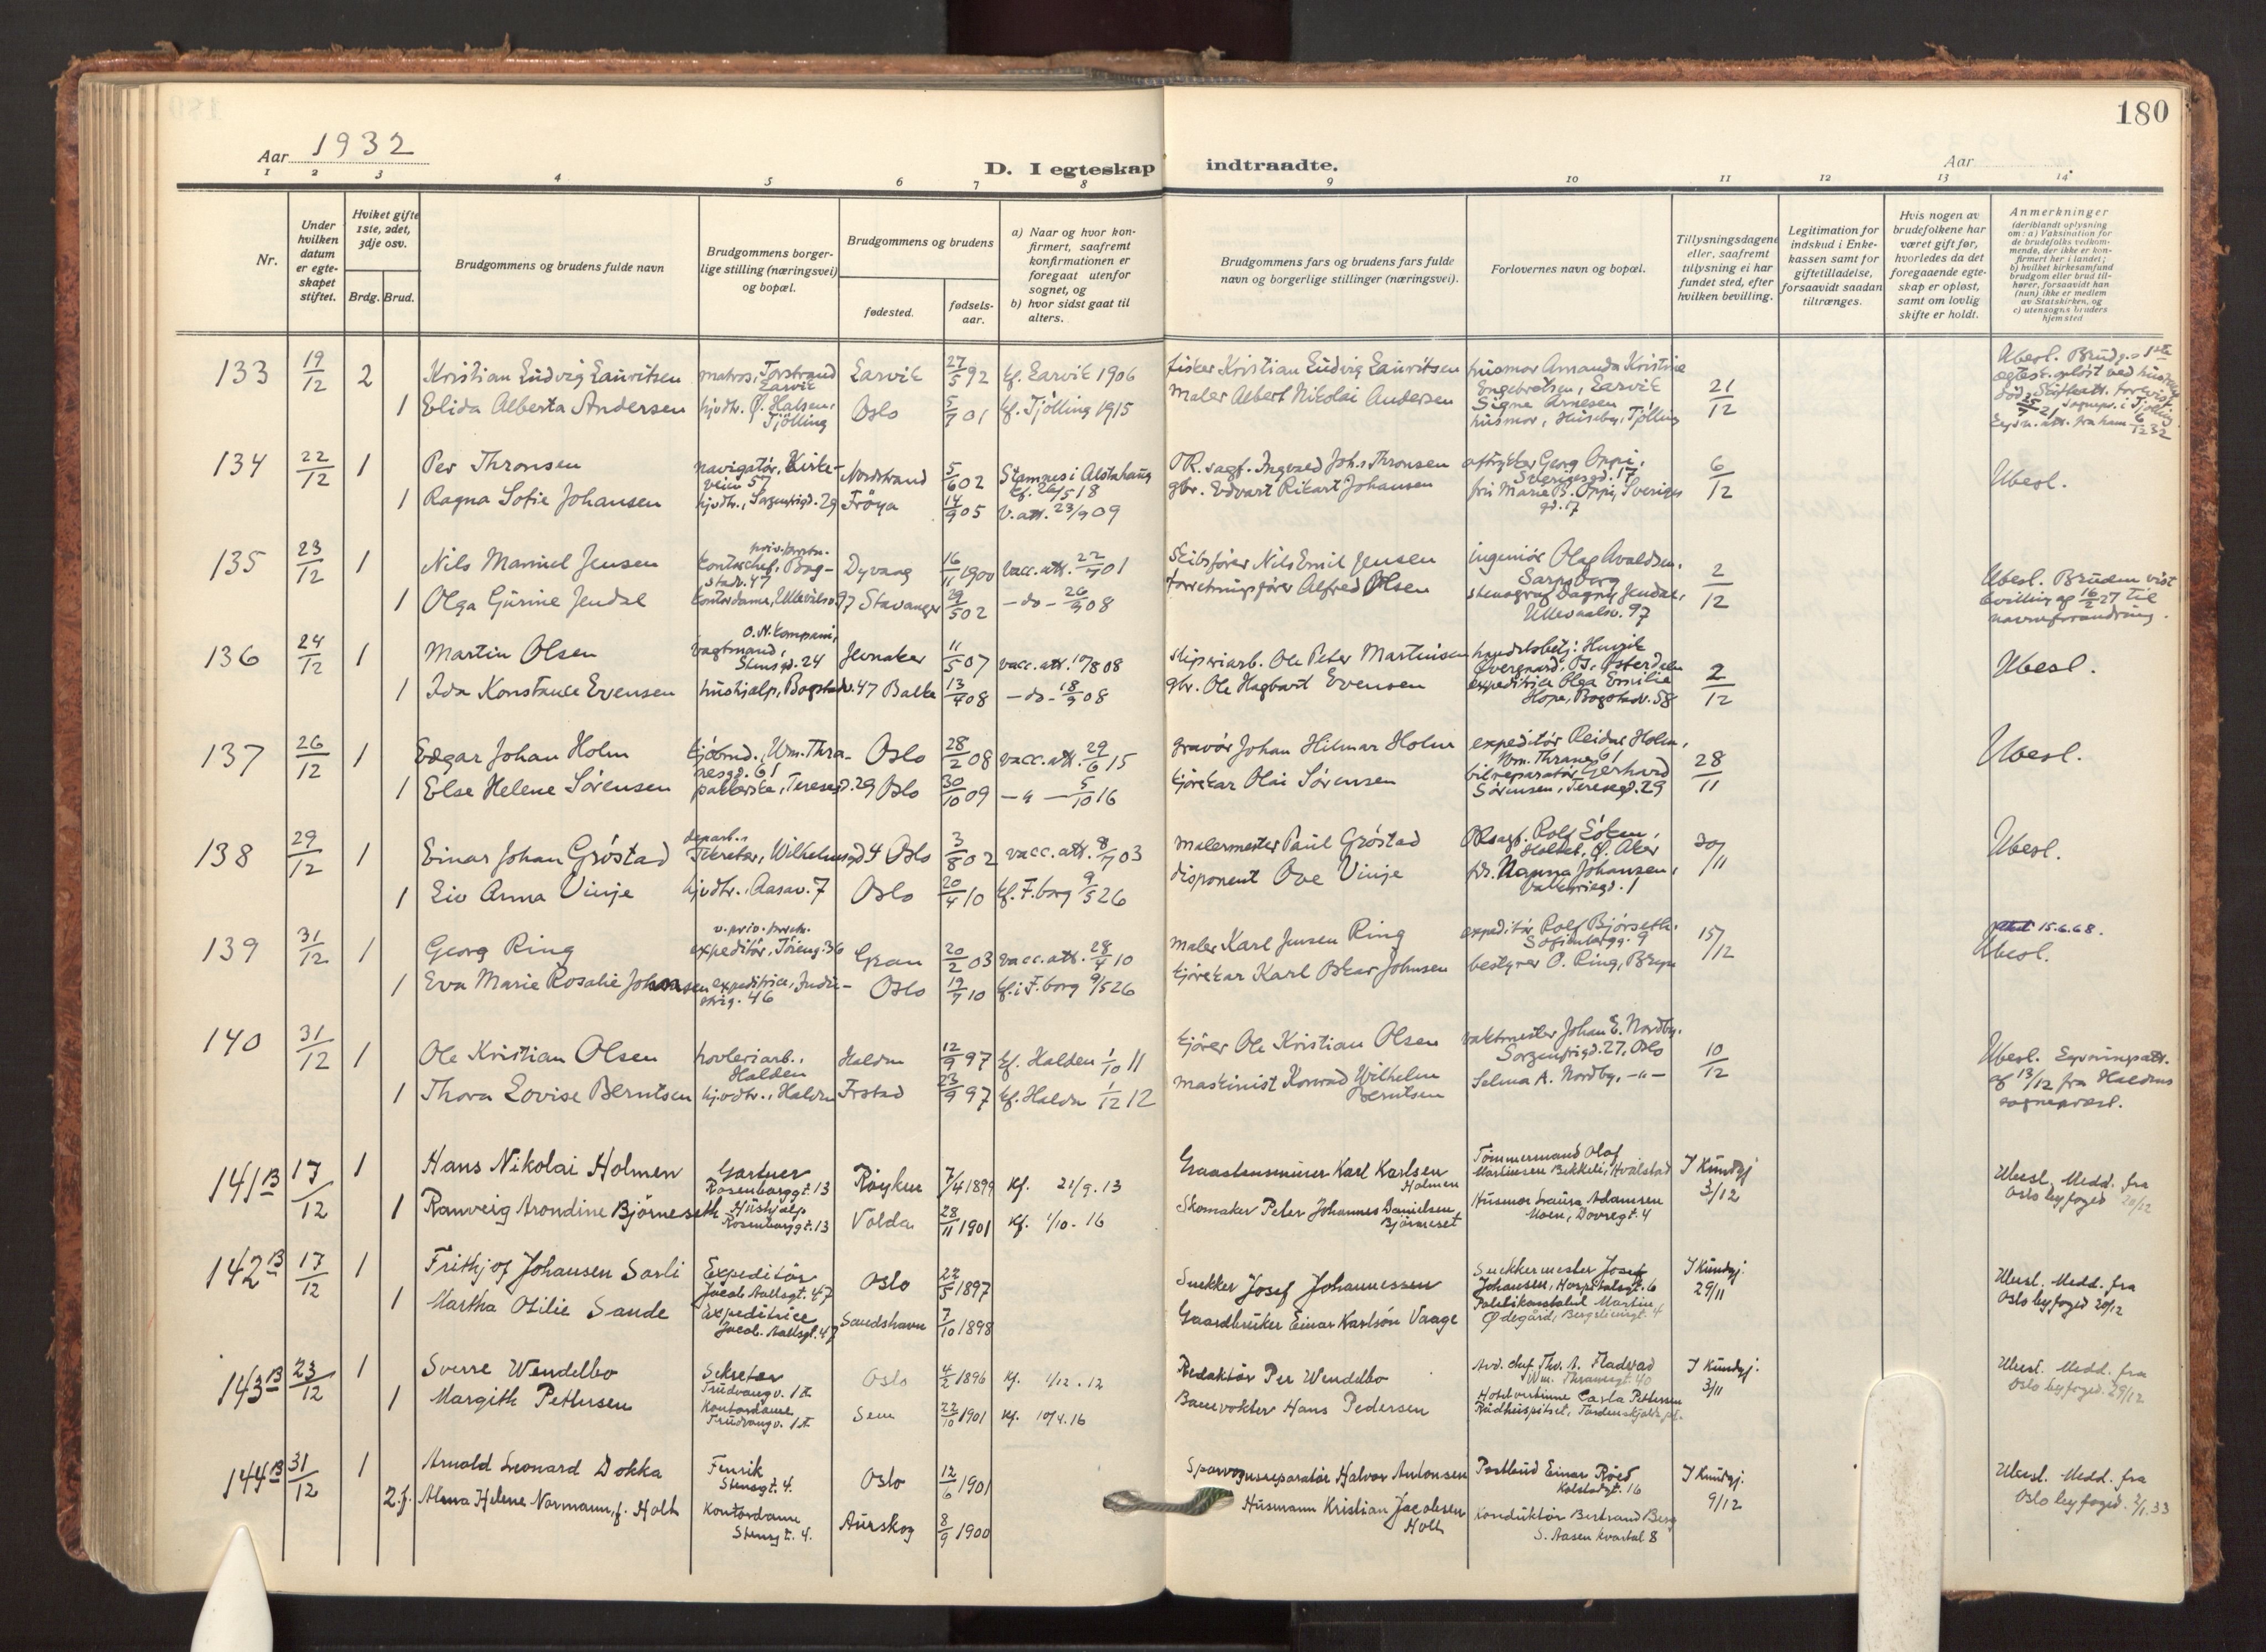 180
Aar 1932
D. I egteskap indtraadte.
Aar
1 2 3 4 5 6 7 8 9 10 11 12 13 14
Nr.
Under hvilken datum er egteskapet stiftet.
Hviket gifte 1ste, 2det, 3dje osv.
Brdg. Brud.
Brudgommens og brudens fulde navn
Brudgommens borgerlige stilling (næringsvei) og bopæl.
Brudgommens og brudens
fødested.
fødselsaar.
a) Naar og hvor konfirmert, saafremt konfirmationen er foregaat utenfor sognet, og
b) hvor sidst gaat til alters.
Brudgommens fars og brudens fars fulde navn og borgerlige stillinger (næringsvei).
Forlovernes navn og bopæl.
Tillysningsdagene eller, saafremt tillysning ei har fundet sted, efter hvilken bevilling.
Legitimation for indskud i Enkekassen samt for giftetilladelse, forsaavidt saadan tiltrænges.
Hvis nogen av brudefolkene har været gift før, hvorledes da det foregaaende egteskap er opløst, samt om lovlig skifte er holdt.
Anmerkninger
(deriblandt oplysning om: a) Vaksination for de brudefolks vedkommende, der ikke er konfirmert her i landet; b) hvilket kirkesamfund brudgom eller brud tilhører, forsaavidt han (hun) ikke er medlem av Statskirken, og c) utensogns bruders hjemsted
133 19/12 2 Kristian Ludvig Lauritsen matros, Torstrand Larvik Larvik 27/5 92 kf. Larvik 1906 fisker Kristian Ludvig Lauritsen husmor Amanda Kristine Engebretsen, Larvik 21/12
1 Elida Alberta Andersen hjvdtr. Ø. Halsen, Tjølling Oslo 5/7 01 kf. Tjölling 1915 maler Albert Nikolai Andersen Signe Arnesen husmor, Huseby, Tjølling
134 22/12 1 Per Thronsen navigatør, Kirkeveien 57 Nordstrand 5/6 02 Stamnes i Alstahaug kf. 26/5 18 OR. sagf. Ingvald Johs Thronsen avtrykker Georg Oppi, Sverigesgd. 17 6/12 Ubesl.
1 Ragna Sofie Johansen hjvdtr., Sorgenfrigd. 29 Fröya 14/9 05 v. att. 23/9 09 gbr. Edvart Rikart Johansen fru Marie B. Oppi, Sveriges gd. 17
135 23/12 1 Nils Manuel Jensen kontorchef, Bogstadv. 47 Dyvaag 16/11 1900 vacc. att. 22/7 01 Skibsfører Nils Emil Jensen ingeniør Olaf Avaldsen, Sarpsborg 2/12 Ubesl. Bruden vist bevilling af 16/2 27 til navneforandring.
1 Olga Gurine Jendal kontordame, Ullevålsv. 97 Stavanger 29/5 02 - do - 26/9 08 forretningsfører Alfred Olsen stenograf Dagny Jendal, Ullevaalsv. 97
136 24/12 1 Martin Olsen O. N. Kompani, vagtmand, Stensgd. 24 Jevnaker 11/5 07 vacc. att. 10/8 08 sliperiarb. Ole Peter Martinsen 2/12 Ubesl.
1 Ida Konstance Evensen hushjelp, Bogstadv. 47 Balke 13/4 08 - do - 18/9 08 gbr. Ole Hagbart Evensen expeditrice Olga Emilie Hope, Bogstadv. 58
137 26/12 1 Edgar Johan Holm kjøbmd., Wm. Thranesgd. 61 Oslo 28/2 08 vacc. att. 29/6 15 gravör Johan Hilmar Holm expeditör Reidar Holm, Wm. Thranesg 61 28/11 Ubesl.
1 Else Helene Sörensen pakkerske, Teresegd. 29 Oslo 30/10 09 - " - 5/10 16 kjörekar Olai Sørensen bilreparatør Gerhard Sörensen, Teresegd. 29
138 29/12 1 Einar Johan Gröstad depart.s sekretær, Wilhelmsgd 4 Oslo 3/8 02 vacc. att. 8/7 03 malermester Paul Gröstad ORsagf. Rolf Löken, Holtet, Ø. Aker 30/11 Ubesl.
1 Liv Anna Vinje hjvdtr., Aasav. 7 Oslo 20/4 10 kf. F.borg 9/5 26 disponent Ove Vinje fr. Nanna Johansen, Valkyriegd. 1
139 31/12 1 Georg Ring expeditör, Töieng. 36 Gran 20/2 03 vacc. att. 28/4 10 maler Karl Jensen Ring expeditör Rolf Bjórseth, Sofienbergg. 9 15/12 15.6.68. Ubesl.
1 Eva Marie Rosalie Johnsen expeditrice, Industrig. 46 Oslo 19/7 10 kf. i F.borg 9/5 26 kjörekar Karl Oskar Johnsen bestyrer O. Ring, Bryn
140 31/12 1 Ole Kristian Olsen hovleriarb., Halden Halden 12/9 97 kf. Halden 1/10 11 kjører Ole Kristian Olsen vaktmester Johan E. Nordby, Sorgenfrigd. 27, Oslo 10/12 Ubesl. Lysningsatt. af 13/12 fra Haldens sogneprest.
1 Thora Lovise Berntsen hjvdtr., Halden Irstad 23/9 97 kf. Halden 1/12 12 maskinist Konrad Wilhelm Berntsen Selma A. Nordby, - " -
141 B 17/12 1 Hans Nikolai Holmen Gartner Rosenborggt. 13 Röyken 7/4 1899 Kf. 21/9. 13 Graastensminer Karl Karlsen Holmen Tömmermand Olaf Martinsen Bikkeli, Hvalstad I Kundgj 3/12 Ubesl. Medd. fra Oslo byfoged 20/12
1 Ranveig Arondine Björneseth Hushjelp Rosenborggt. 13 Volda 28/11 1901 Kf. 1/10. 16 Skomaker Peter Johannes Danielsen Björneset Husmor Laura Adamsen Moen, Dovregt. 4
142 B 17/12 1 Frithjof Johansen Sarli Expeditör Jacob Aallsgt. 47 Oslo 22/5 1897 Snekker Josef Johannessen Snekkermester Josef Johansen, Hospitalsgt. 6 I Kundgj. 29/11 Ubesl. Medd. fra Oslo byfoged 20/12
1 Martha Otilie Sande Expeditrice Jacob Aallsgt. 47 Sandshavn 7/10 1898 Gaardbruker Einar Karlson Vaage Politikonstabel Martin Ødegård, Bergsliensgt. 4
143 B 23/12 1 Sverre Wendelbo Sekretær Trudvangv. 1 Oslo 4/2 1896 Kf. 1/12. 12 Redaktör Per Wendelbo Avd. chef Thv. A. Fladvad Wm. Thranesgt. 40 I Kundgj. 3/11 Ubesl. Medd. fra Oslo byfoged 29/12
1 Margith Pettersen Kontordame Trudvangv. 1 Sem 22/10 1901 Kf. 10/4. 16 Banevokter Hans Pedersen Hotelvertinne Carla Pettersen Rådhuspitset, Tordenskjolds
144 B 31/12 1 Arnold Leonard Dokka Fenrik Stensgt. 4. Oslo 12/6 1901 Sporvognsreparatör Halvor Antonsen Postbud Einar Röed Kolstadgt. 16 I Kundgj. 9/12 Ubesl. Medd. fra Oslo byfoged. 2/1. 33
2. f. Alma Helene Normann, f. Holt Kontordame Stensgt. 4. Aurskog 8/9 1900 Husmann Kristian Jacobsen Holt Konduktör Bertrand Berg S. Aasen kvartal 8